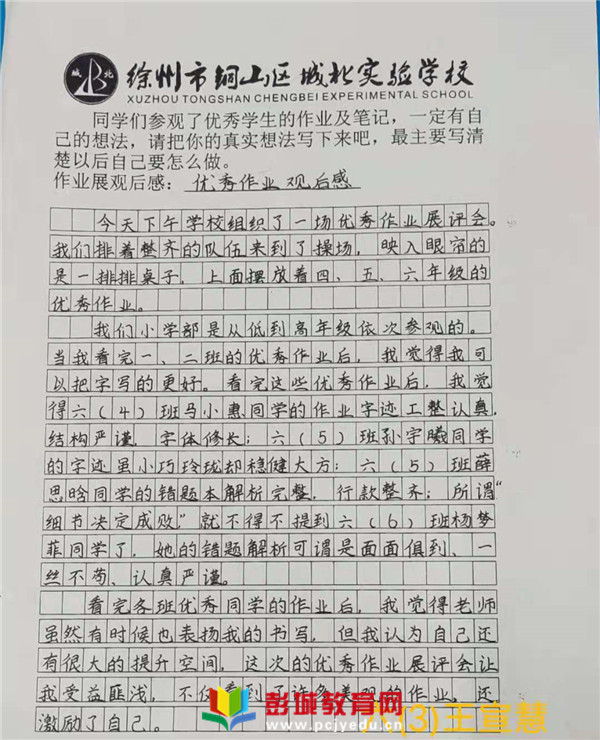 城北
徐州市铜山区城北实验学校
XUZHOU TONGSHAN CHENGBEI EXPERIMENTAL SCHOOL
同学们参观了优秀学生的作业及笔记，一定有自
己的想法，请把你的真实想法写下来吧，最主要写清
楚以后自己要怎么做。
作业展观后感：优秀作业观后感
今天下午学校组织了一场优秀作业展评会。
我们排着整齐的队伍来到了操场，映入眼帘的
是一排排桌子，上面摆放着四、五、六年级的
优秀作业。
我们小学部是从低到高年级依次参观的。
当我看完一、二班的优秀作业后，我觉得我可
以把字写的更好。看完这些优秀作业后，我觉
得六（4）班马小惠同学的作业字迹工整认真，
结构严谨，字体修长；六（5）班孙宇曦同学
的字迹虽小巧玲珑却稳健大方；六（5）班薛
思晗同学的错题本解析完整，行款整齐；所谓“
细节决定成败”就不得不提到六（6）班杨梦
菲同学了，她的错题解析可谓是面面俱到、一
丝不苟、认真严谨。
看完各班优秀同学的作业后，我觉得老师
虽然有时候也表扬我的书写，但我认为自己还
有很大的提升空间，这次的优秀作业展评会让
我受益匪浅，不仅看到了许多美观的作业，还
激励了自己。
彭城教育网
www.pcjyedu.cn
(3)王宣慧